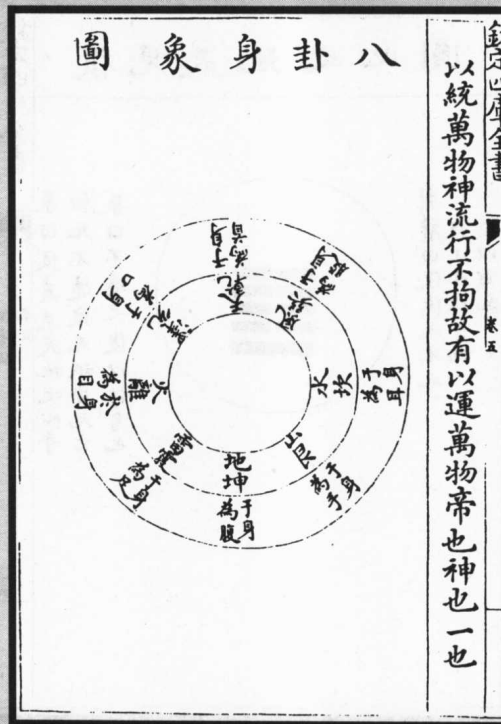 欽定四庫全書
卷五
以統萬物神流行不拘故有以運萬物帝也神也一也
八卦身象圖
天乾
于身為首
風巽
于身為股
水坎
于身為耳
山艮
于身為手
地坤
于身為腹
雷震
于身為足
火離
於身為目
澤兌
于身為口